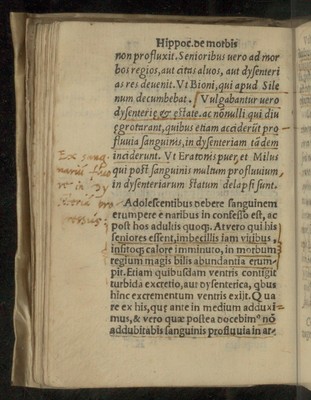 Hippoc. de morbis
non profluxit. Senioribus uero ad mor
bos regios, aut citas aluos, aut dysenteri
as res deuenit. Vt Bioni, qui apud Sile
num decumbebat. Vulgabantur uero
dysenterię & ęstate. ac nōnulli, qui diu
ęgrotarant, quibus etiam acciderūt pro
fluuia sanguinis, in dysenteriam tādem
inciderunt. Vt Eratonis puer, et Milus
qui post sanguinis multum profluuium,
in dysenteriarum statum delapsi sunt.
Ex sang
in Dy
Adolescentibus debere sanguinem
erumpere è naribus in confesso est, ac
post hos adultis quoq. At vero qui his
seniores essent, imbecillis iam viribus,
insitoq; calore imminuto, in morbum
regium magis bilis abundantia erum
pit. Etiam quibusdam ventris contigit
turbida excretio, aut dysenterica, qbus
hinc excrementum ventris exijt. Qua
re ex his, quę ante in medium adduxi-
mus, & vero quæ postea docebimꝰ nō
addubitabis sanguinis profluuia in ar-